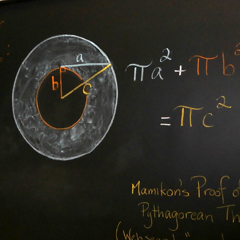 a
b
c
πa² + πb²
= πc²
Mamikon's Proof of
Pythagorean Th